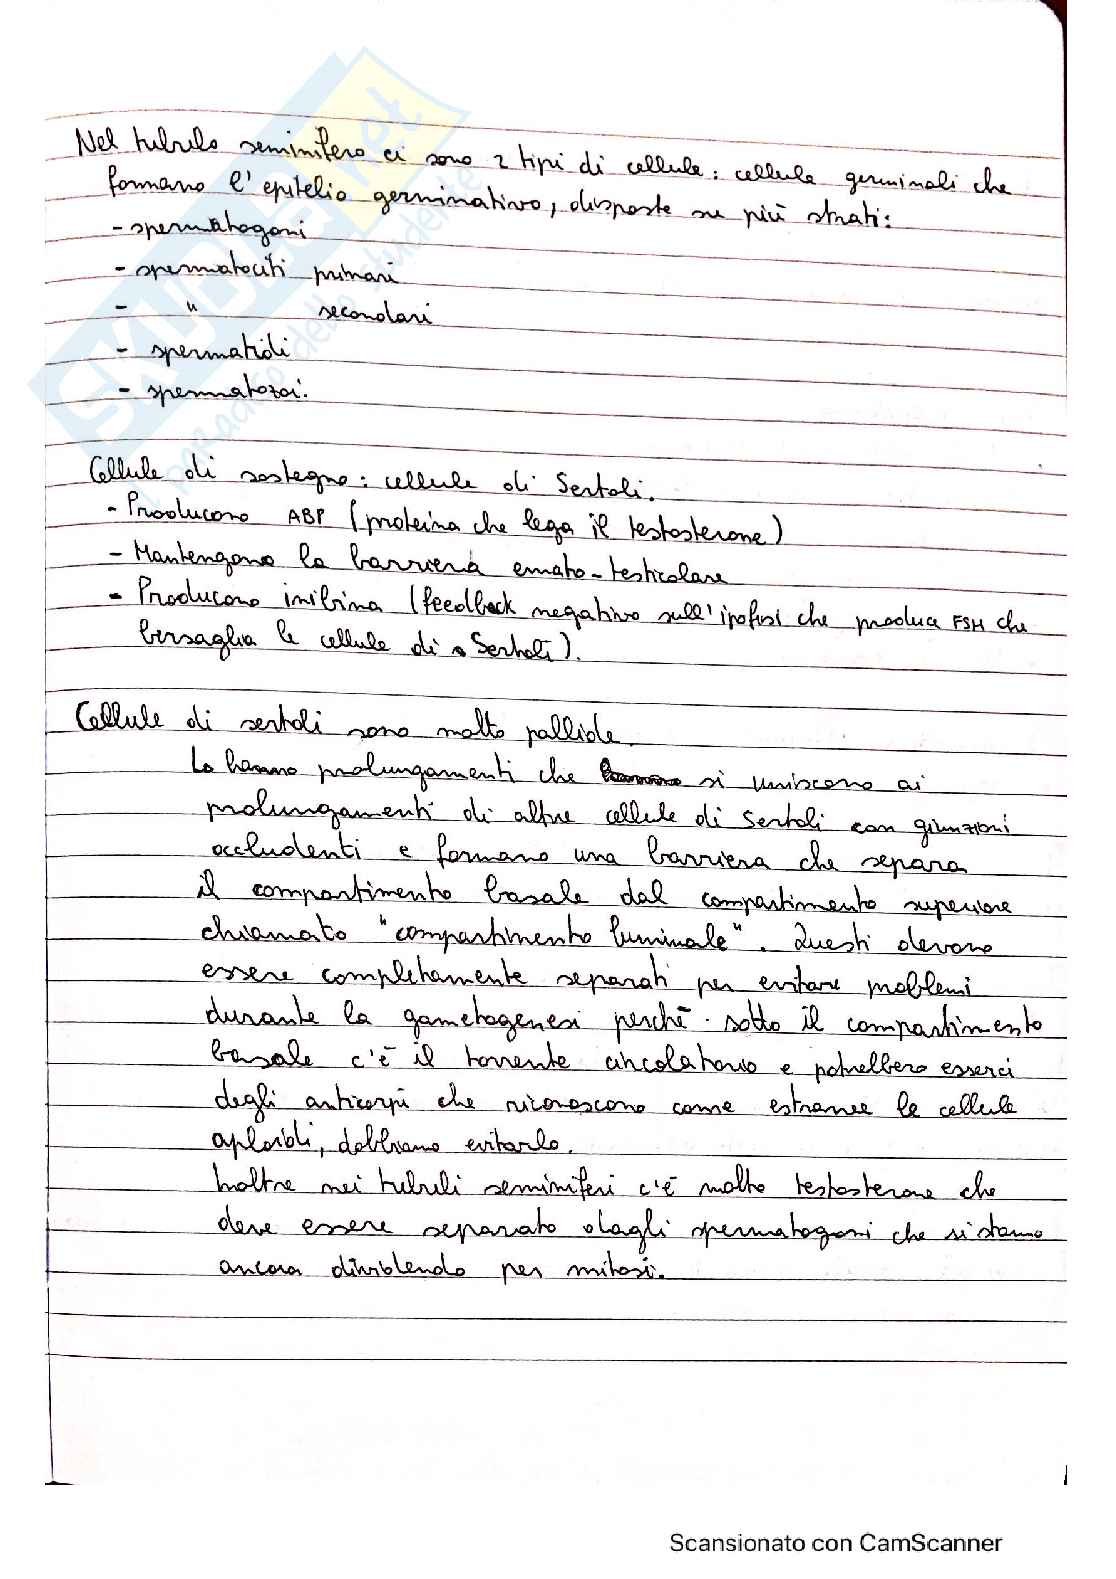 Nel tubulo seminifero ci sono 2 tipi di cellule: cellule germinali che
formano l'epitelio germinativo, disposte su più strati:
- spermatogoni
- spermatociti primari
- " secondari
- spermatidi
- spermatozoi.
Cellule di sostegno: cellule di Sertoli.
- Producono ABP (proteina che lega il testosterone)
- Mantengono la barriera emato-testicolare
- Producono inibina (feedback negativo sull'ipofisi che produce FSH che
bersaglia le cellule di Sertoli).
Cellule di sertoli sono molto pallide.
↳ hanno prolungamenti che si uniscono ai
prolungamenti di altre cellule di Sertoli con giunzioni
occludenti e formano una barriera che separa
il compartimento basale dal compartimento superiore
chiamato "compartimento luminale". Questi devono
essere completamente separati per evitare problemi
durante la gametogenesi perchè sotto il compartimento
basale c'è il torrente circolatorio e potrebbero esserci
degli anticorpi che riconoscono come estranee le cellule
aploidi, dobbiamo evitarlo.
Inoltre nei tubuli seminiferi c'è molto testosterone che
deve essere separato dagli spermatogoni che si stanno
ancora dividendo per mitosi.
SKUOLA.net
il paradiso dello studente
Scansionato con CamScanner